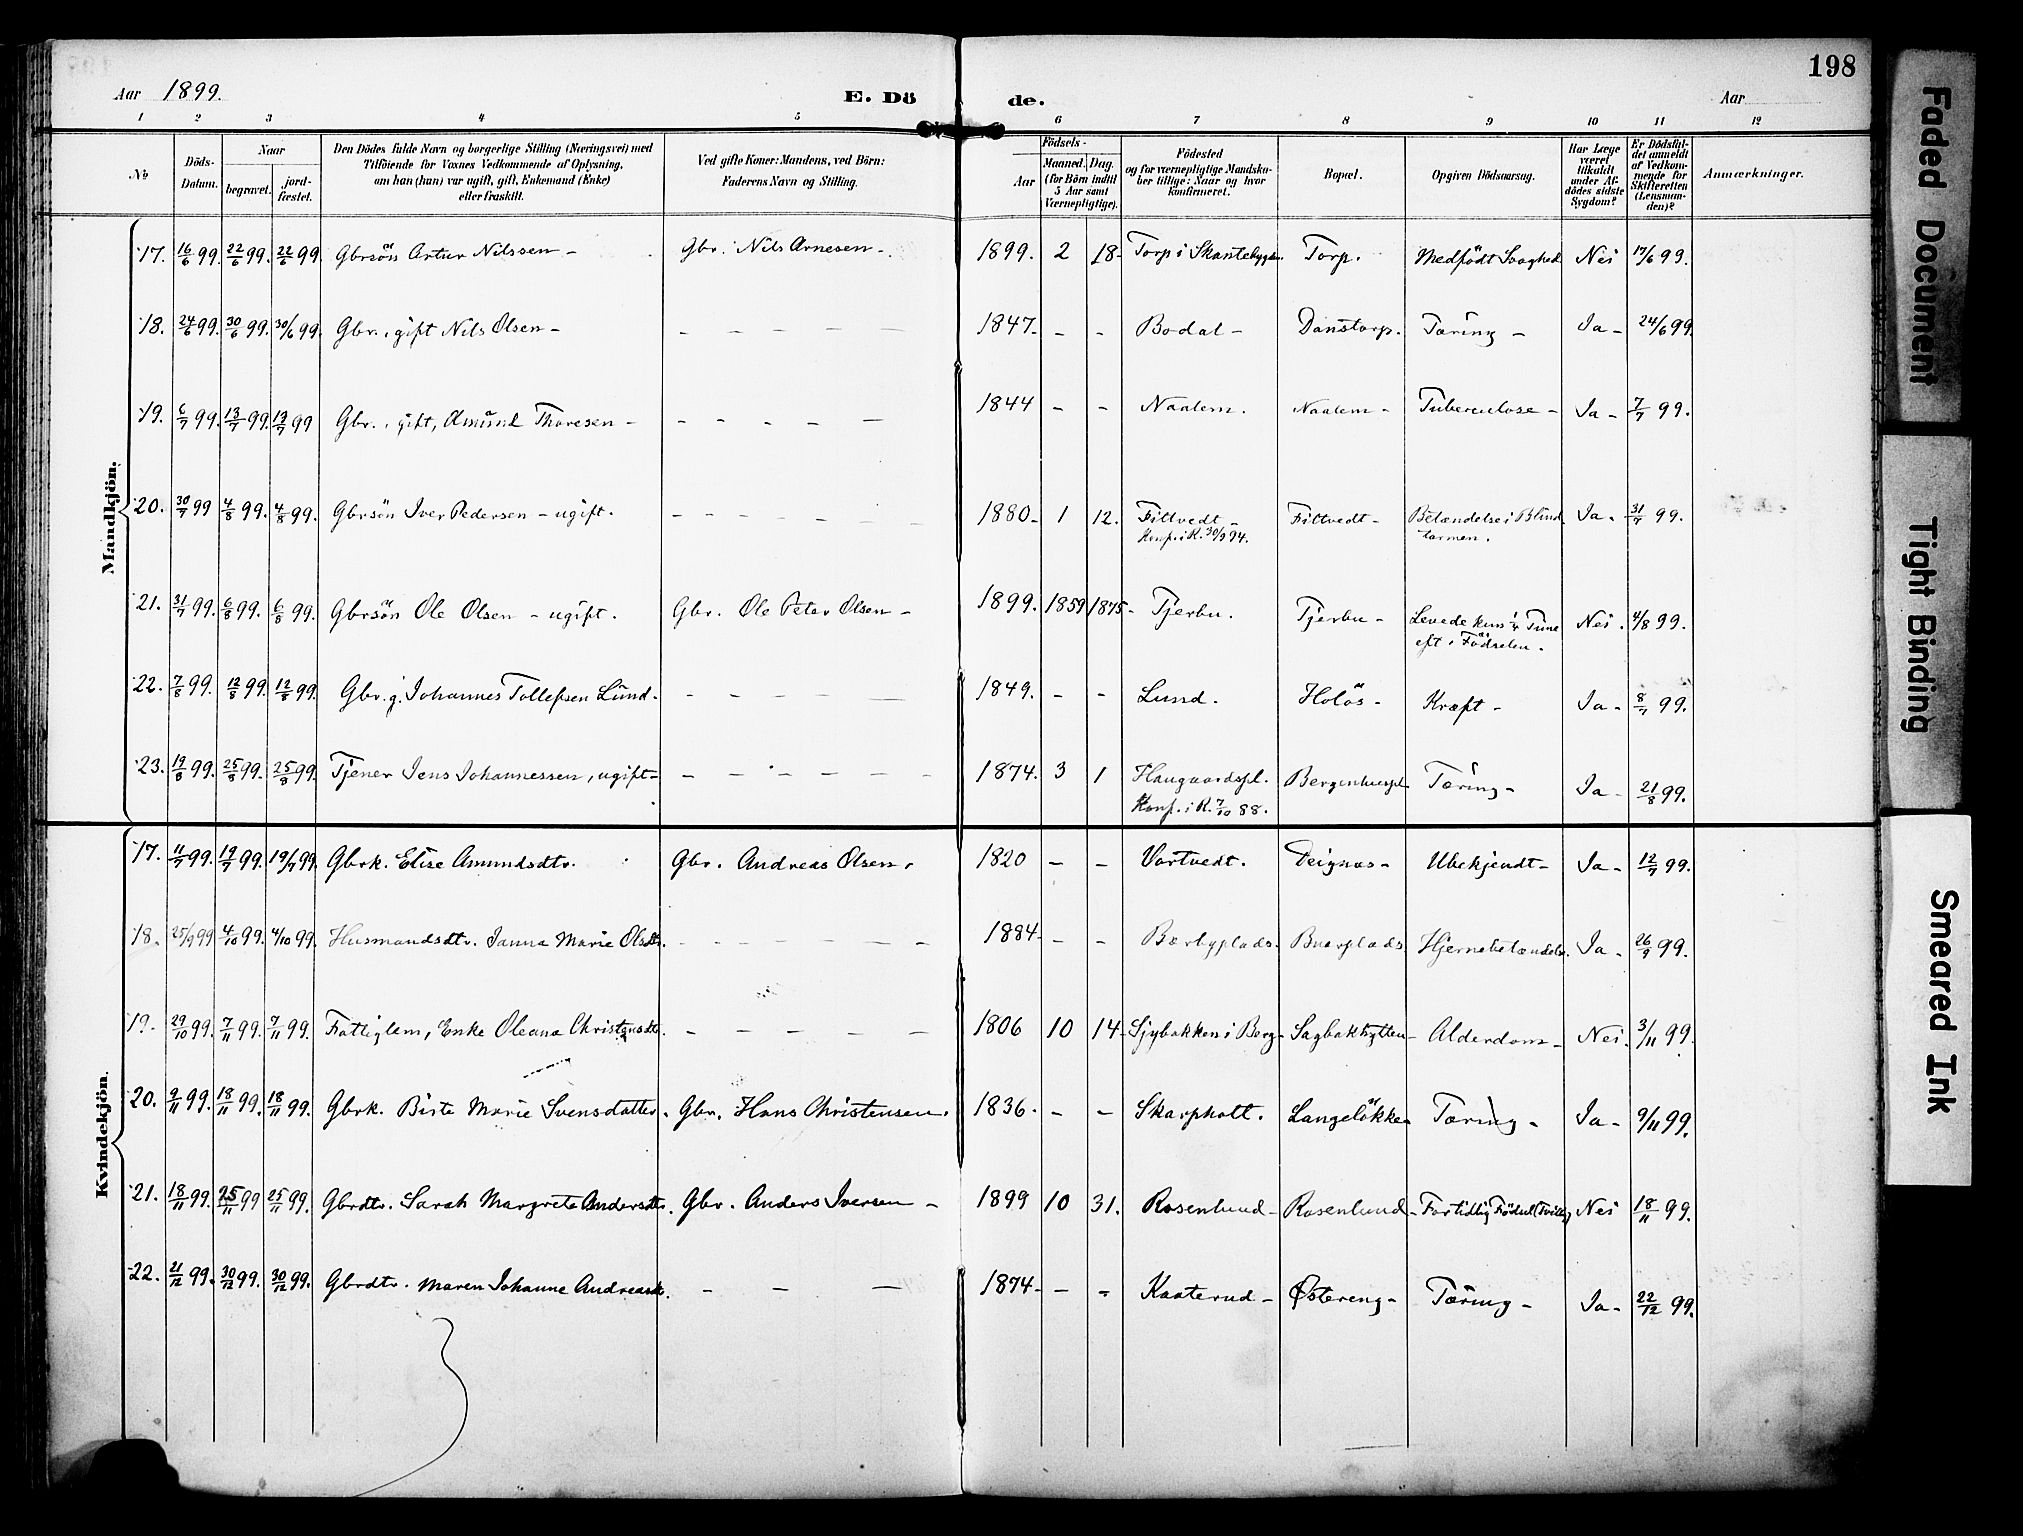 198
Aar 1899.
E. Dö de.
Aar
1 2 3 4 5 6 7 8 9 10 11 12
No
Döds-Datum.
Naar
begravet.
jord-fæstet.
Den Dödes fulde Navn og borgerlige Stilling (Næringsvei) med
Tilföiende for Voxnes Vedkommende af Oplysning,
om han (hun) var ugift, gift, Enkemand (Enke)
eller fraskilt.
Ved gifte Koner: Mandens, ved Börn:
Faderens Navn og Stilling.
Födsels-
Aar
Maaned. Dag.
(for Börn indtil
5 Aar samt
Værnepligtige).
Födested
og for værnepligtige Mandska-
ber tillige: Naar og hvor
konfirmeret.
Bopæl.
Opgiven Dödsaarsag.
Har Læge
været
tilkaldt
under Af-
dødes sidste
Sygdom?
Er Dödsfal-
det anmeldt
af Vedkom-
mende for
Skifteretten
(Lensman-
den)?
Anmærkninger.
Mandkjön.
17. 16/6 99. 22/6 99. 22/6 99 Gbrsön Artur Nilssen - Gbr. Nils Arnesen - 1899. 2 18- Torp i Skantebygden. Torp. Medfödt Svaghed Nei 17/6 99.
18. 24/6 99. 30/6 99. 30/6 99 Gbr., gift Nils Olsen - 1847- - - Bodal - Danstorp. Tæring - Ja - 24/6 99
19. 6/7 99. 13/7 99. 13/7 99 Gbr., gift, Amund Thoresen - 1844 - - Naalem. Naalem - Tuberculose - Ja - 7/7 99.
20. 30/7 99 4/8 99. 4/8 99. Gbrsön Iver Pedersen - ugift. 1880- 1 12. Filtvedt - Filtvedt - Betændelse i Blind Ja - 31/7 99.
Konf. i R. 30/9 94. tarmen.
21. 31/7 99. 6/8 99. 6/8 99. Gbrsön Ole Olsen - ugift. Gbr. Ole Peter Olsen - 1899. 1859 1875- Tjerbu. Tjerbu - Levede kun 1/4 Time Nei. 4/8 99.
eft. Födselen.
22. 7/8 99. 12/8 99. 12/8 99. Gbr. g. Johannes Tollefsen Lund. 1849. - - Lund. Holös - Kræft - Ja - 8/7 99.
23. 19/8 99. 25/8 99. 25/8 99. Tjener Jens Johannessen, ugift - 1874. 3 1 Haugaardspl. Bergenhuspl. Tæring - Ja - 21/8 99.
Konf. i R. 7/10 88.
Kvindekjön.
17. 11/7 99. 19/7 99. 19/7 99. Gbrk. Elise Amundsdtr. Gbr. Andreas Olsen. 1820 - - Vortvedt. Deignæs - Ubekjendt - Ja - 12/7 99.
18. 25/9 99 4/10 99. 4/10 99. Husmandsdtr. Janna Marie Olsdtr. 1884- - - Bærbyplads. Buerplads Hjernebetændelse. Ja - 26/9 99.
19. 29/10 99. 7/11 99. 7/11 99. Fattiglem, Enke Oleana Christensdtr. 1806 10 14- Sjybakken i Berg- Sagbakhytten- Alderdom - Nei. 3/11 99.
20. 9/11 99. 18/11 99. 18/11 99. Gbrk. Birte Marie Svensdatter. Gbr. Hans Christensen. 1836. - - Skarpholt. Langelökken Tæring - Ja - 9/11 99.
21. 18/11 99. 25/11 99 25/11 99. Gbrdtr. Sarah Margrete Andersdtr. Gbr. Anders Iversen - 1899 10 31. Rosenlund - Rosenlund - Fortidlig Födsel (Tvilling) Nei 18/11 99.
22. 21/12 99. 30/12 99. 30/12 99. Gbrdtr. Maren Johanne Andreasdtr. 1874- - - Kaaterud - Østereng - Tæring - Ja - 22/12 99.
Faded Document
Tight Binding
Smeared Ink